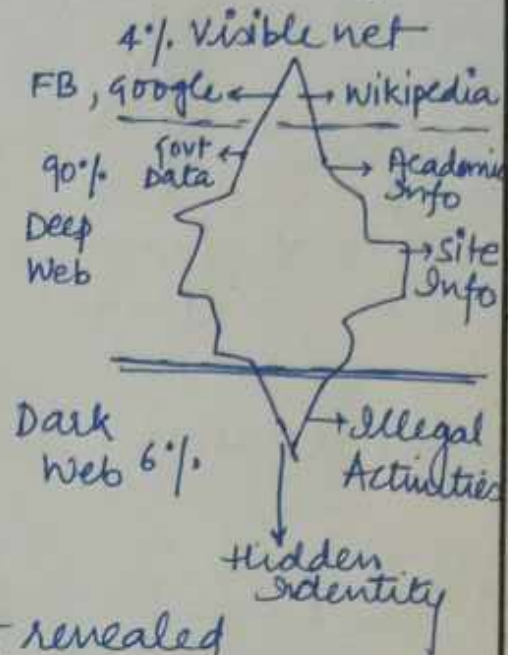 4% Visible net
FB, Google ← → Wikipedia
90% Govt Data ← → Academic Info
Deep Web
→ Site Info
Dark Web 6%
→ Illegal Activities
Hidden Identity
revealed